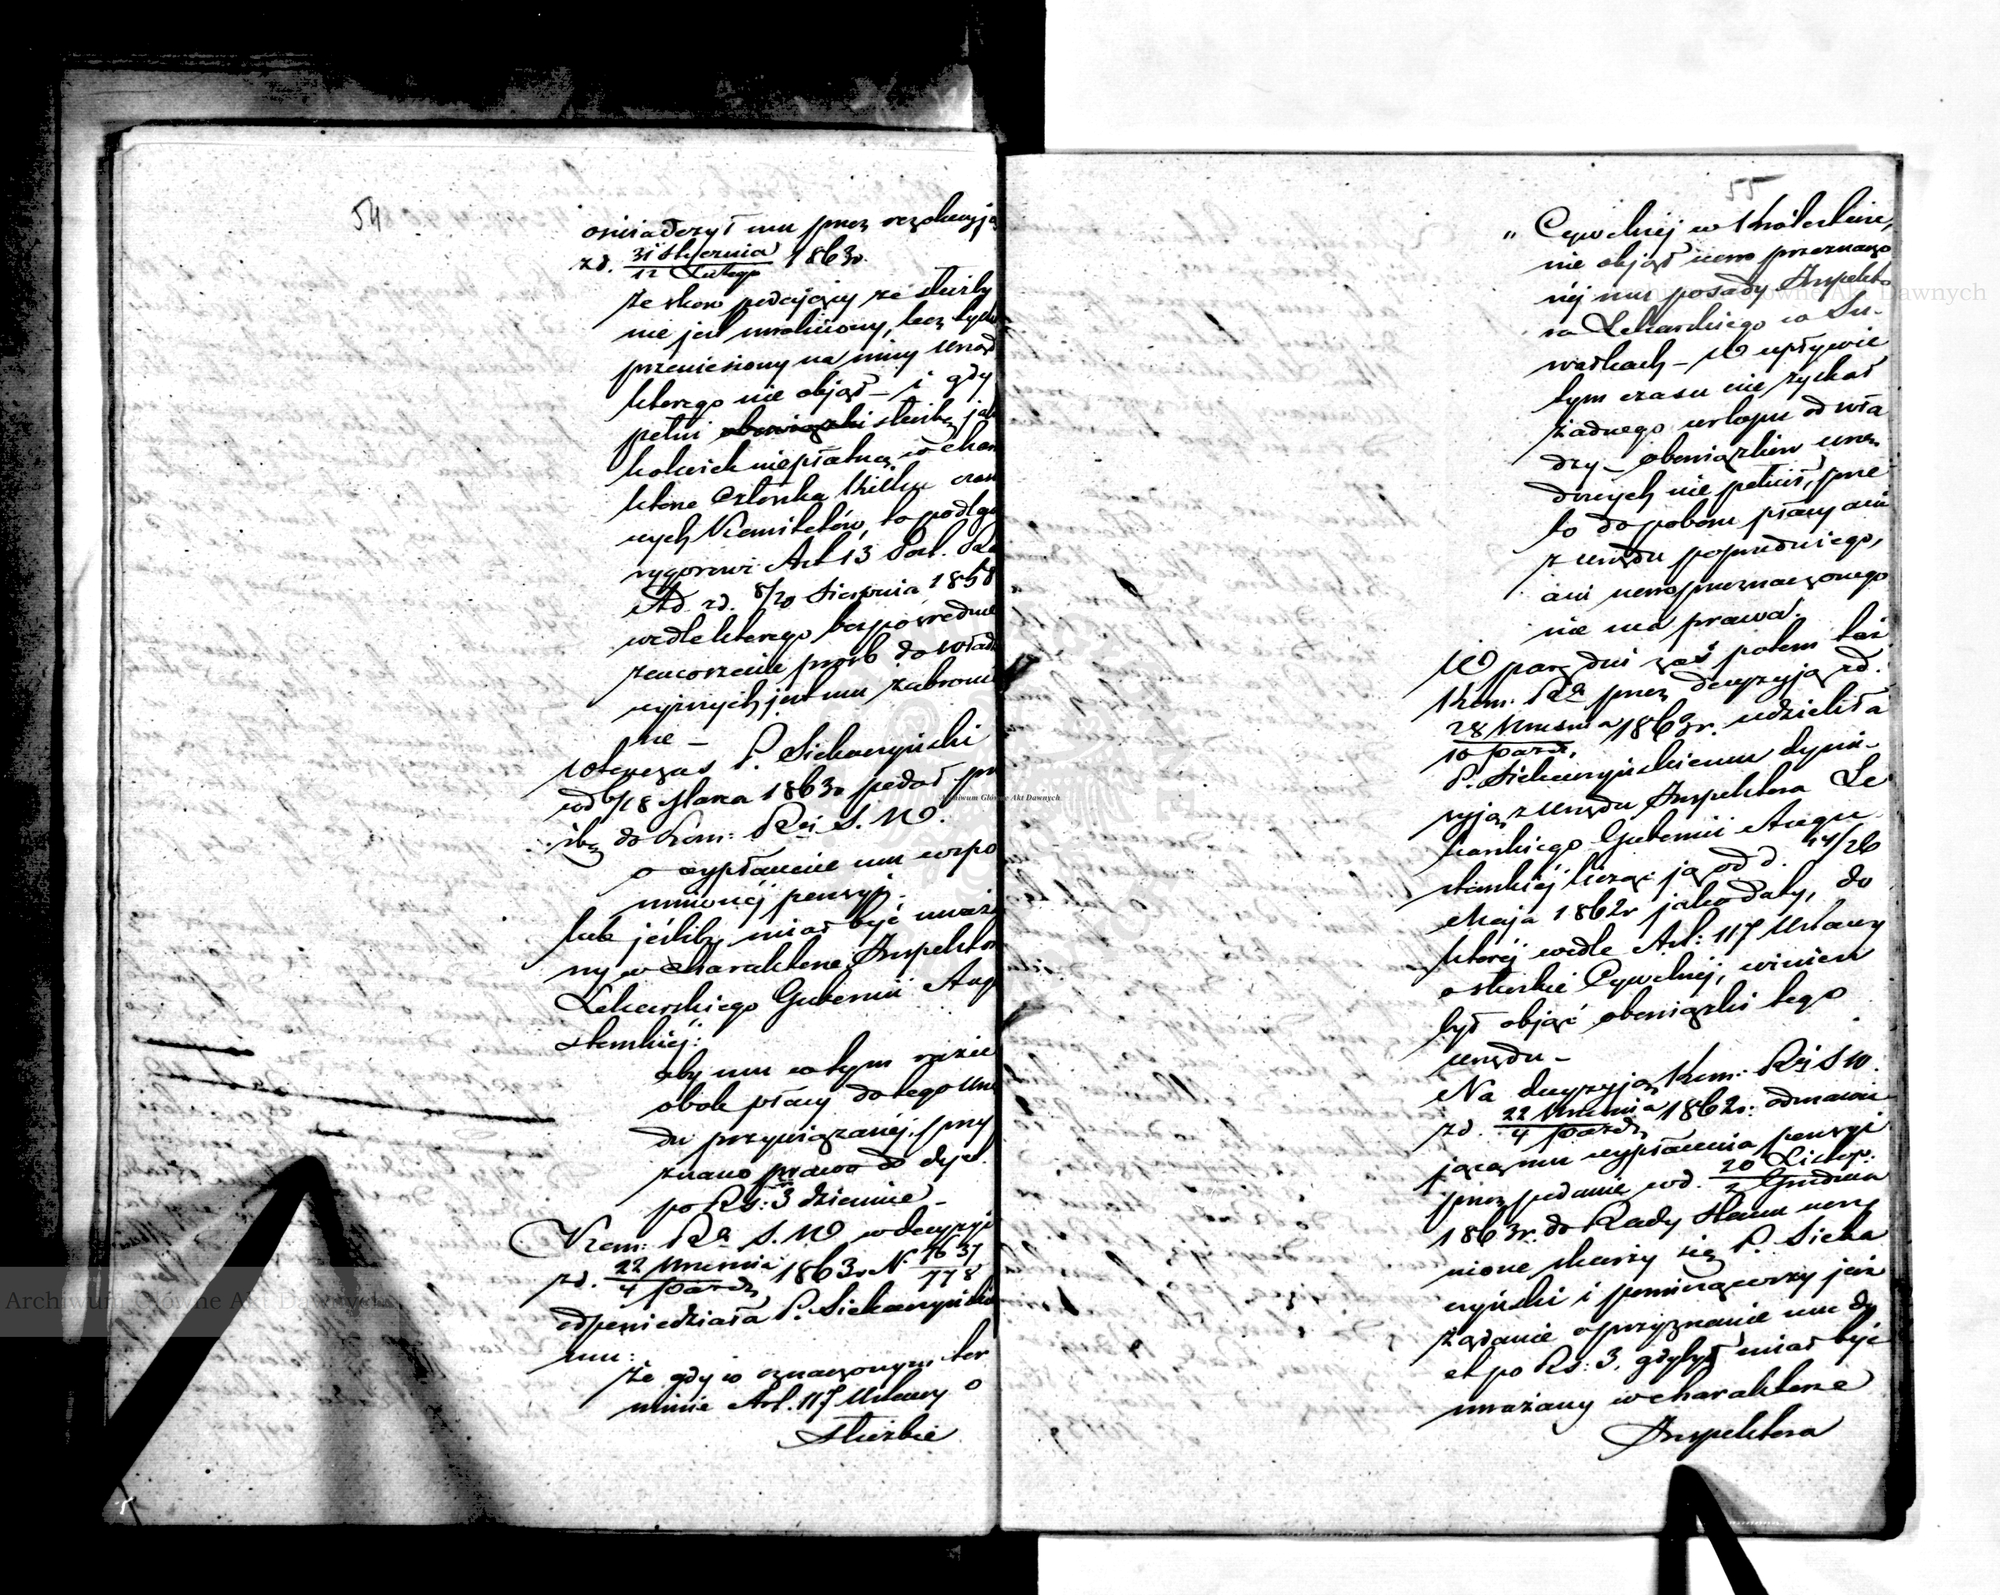 54
oświadczył mu przez rezolucyją
z d. 31 Stycznia 1863r
12 Lutego
że skoro podający ze służby
nie jest uwolniony, lecz tylko
przeniesiony na inny Urząd
którego nie objął – i gdy
pełni obowiązki służbę jak
kolwiek niepłatną w chara
kterze Członka kilku czaso
wych Komitetów, to podlega
rygorowi Art 13 Post. Rady
Ad. z d. 8/20 Sierpnia 1858
wedle którego bezpośrednie
zanoszenie prośb do Władz
wyższych jest mu zabronio
ne –
Wówczas P. Siekaczyński
w d 6/18 Marca 1863r podał pro
źbę do Kom: Rz: S. W.
o wypłacenie mu wspo
mnionéj pensyi.
lub jeśliby miał być uważa
ny w charakterze Inspektora
Lekarskiego Gubernii Augu
stowskiéj:
aby mu w tym razie
obok płacy do tego Urzę
du przywiązanéj, przy
znano prawo do dyet
po Rs: 3 dziennie –
Kom: Rz. S. W. w decyzyi
z d. 22 Września 1863r N.
4 Paźdz
odpowiedziała P. Siekaczyńskie
mu:
że gdy w oznaczonym ter
minie Art. 117 Ustawy o
Służbie
55
„ Cywilnéj w Królestwie,
nie objął nowo przeznaczo
néj mu posady Inspekto
ra Lekarskiego w Su-
wałkach – W upływie
tym czasu nie zyskał
żadnego urlopu od wła
dzy – obowiązków urzę
dowych nie pełnił, prze
to do poboru płacy ani
z urzędu poprzedniego,
ani nowo przeznaczonego
nie ma prawa.
W parę dni zaś potem taż
Kom: Rz. przez decyzyją z d.
28 Września 1863r. udzieliła
10 Paźdz,
P. Siekaczyńskiemu dymi-
syją z Urzędu Inspektora Le
karskiego Gubernii Augu
stowskiéj licząc ją od d. 14/26
Maja 1862r jako daty, do
któréj wedle Art: 117 Ustawy
o służbie Cywilnéj, winien
był objąć obowiązki tego
urzędu –
Na decyzyją Kom: Rz: S W.
z d. 22 Września 1862r: odmawia
4 Paźdz
jącą mu wypłacenia pensyi
przez podanie w d. 20 Listop:
2 Grudnia
1863r. do Rady Stanu
nione skarży się P. Sieka
czyński i ponowiwszy już
żądanie o przyznanie mu dy
et po Rs: 3. gdyby miał być
uważany w charakterze
Inspektora
Archiwum Główne Akt Dawnych